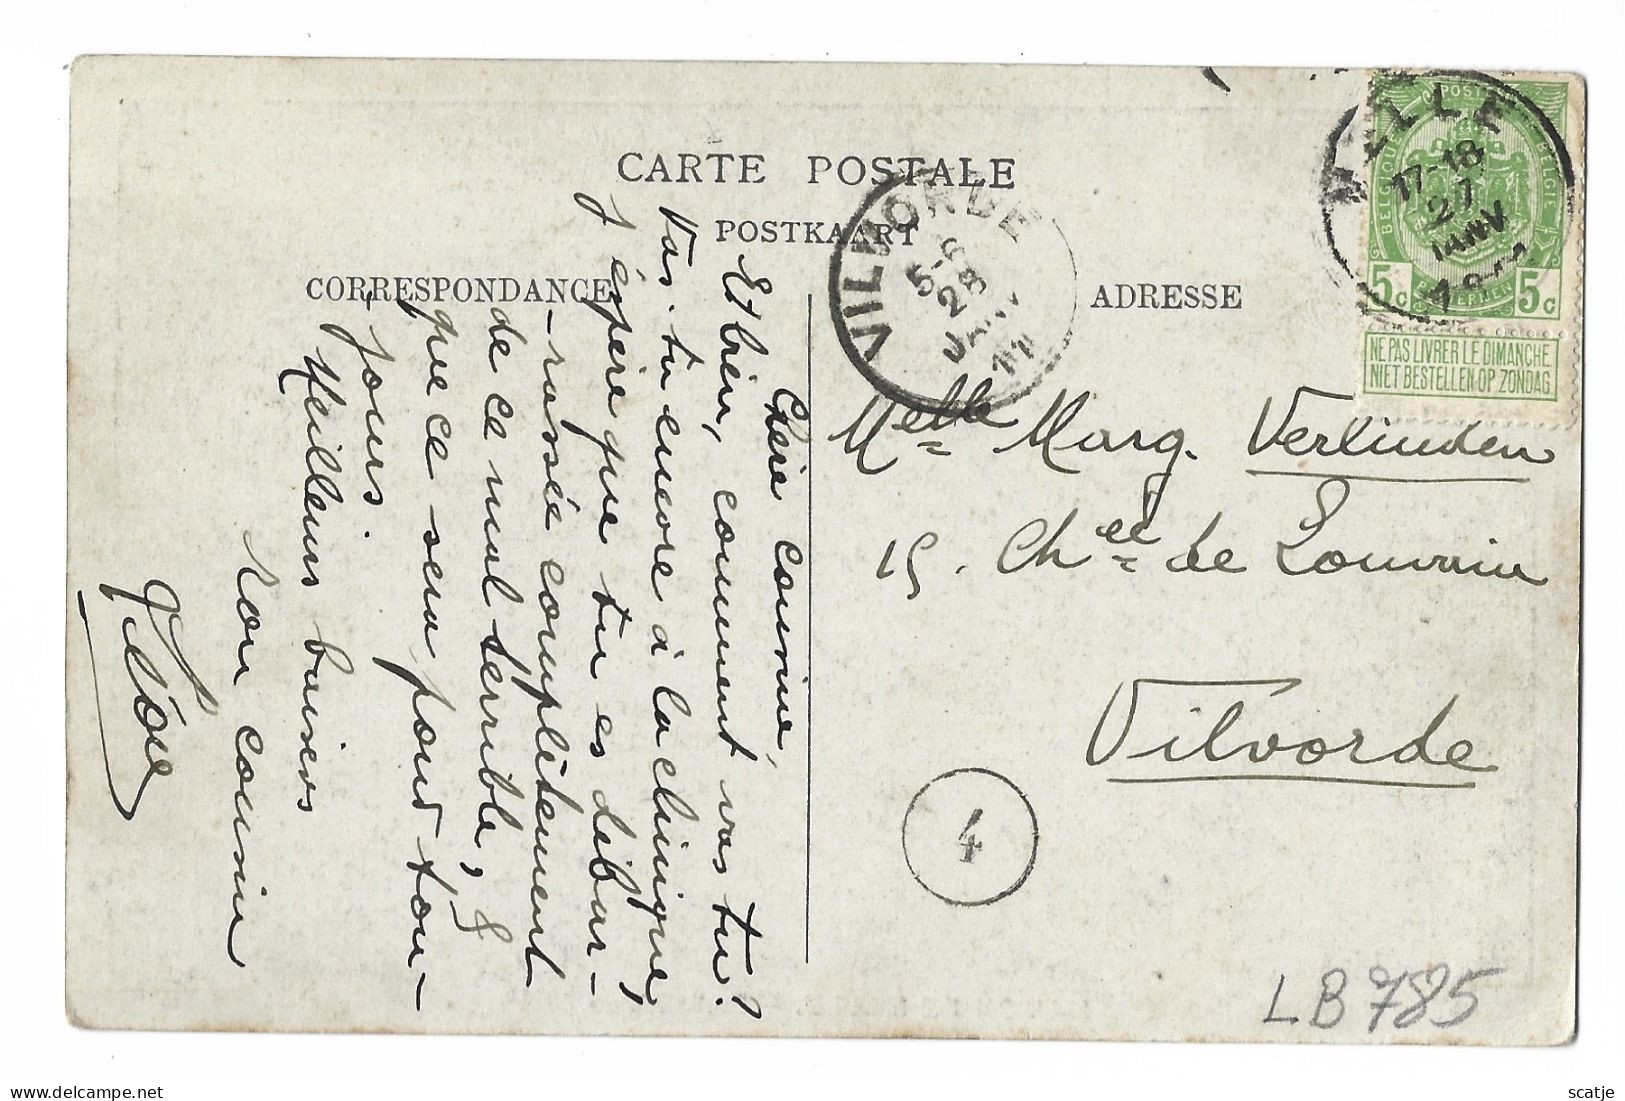 CARTE POSTALE
POSTKAART
CORRESPONDANCE
ADRESSE
Chère cousine,
Et bien, comment vas tu?
Vas-tu encore à la clinique,
J'espère que tu es débar-
-rassée complètement
de ce mal terrible, &
que ce sera pour tou-
-jours.
Meilleurs baisers
Ton cousin
VILVORDE
5-6
28
JANV
11
MELLE
17-18
27
JANV
POSTE
BELGIQUE
BELGIË
5c
5c
NE PAS LIVRER LE DIMANCHE
NIET BESTELLEN OP ZONDAG
Melle Marg. Verlinden
15. Chée de Louvain
Vilvorde
4
LB 785
scatje